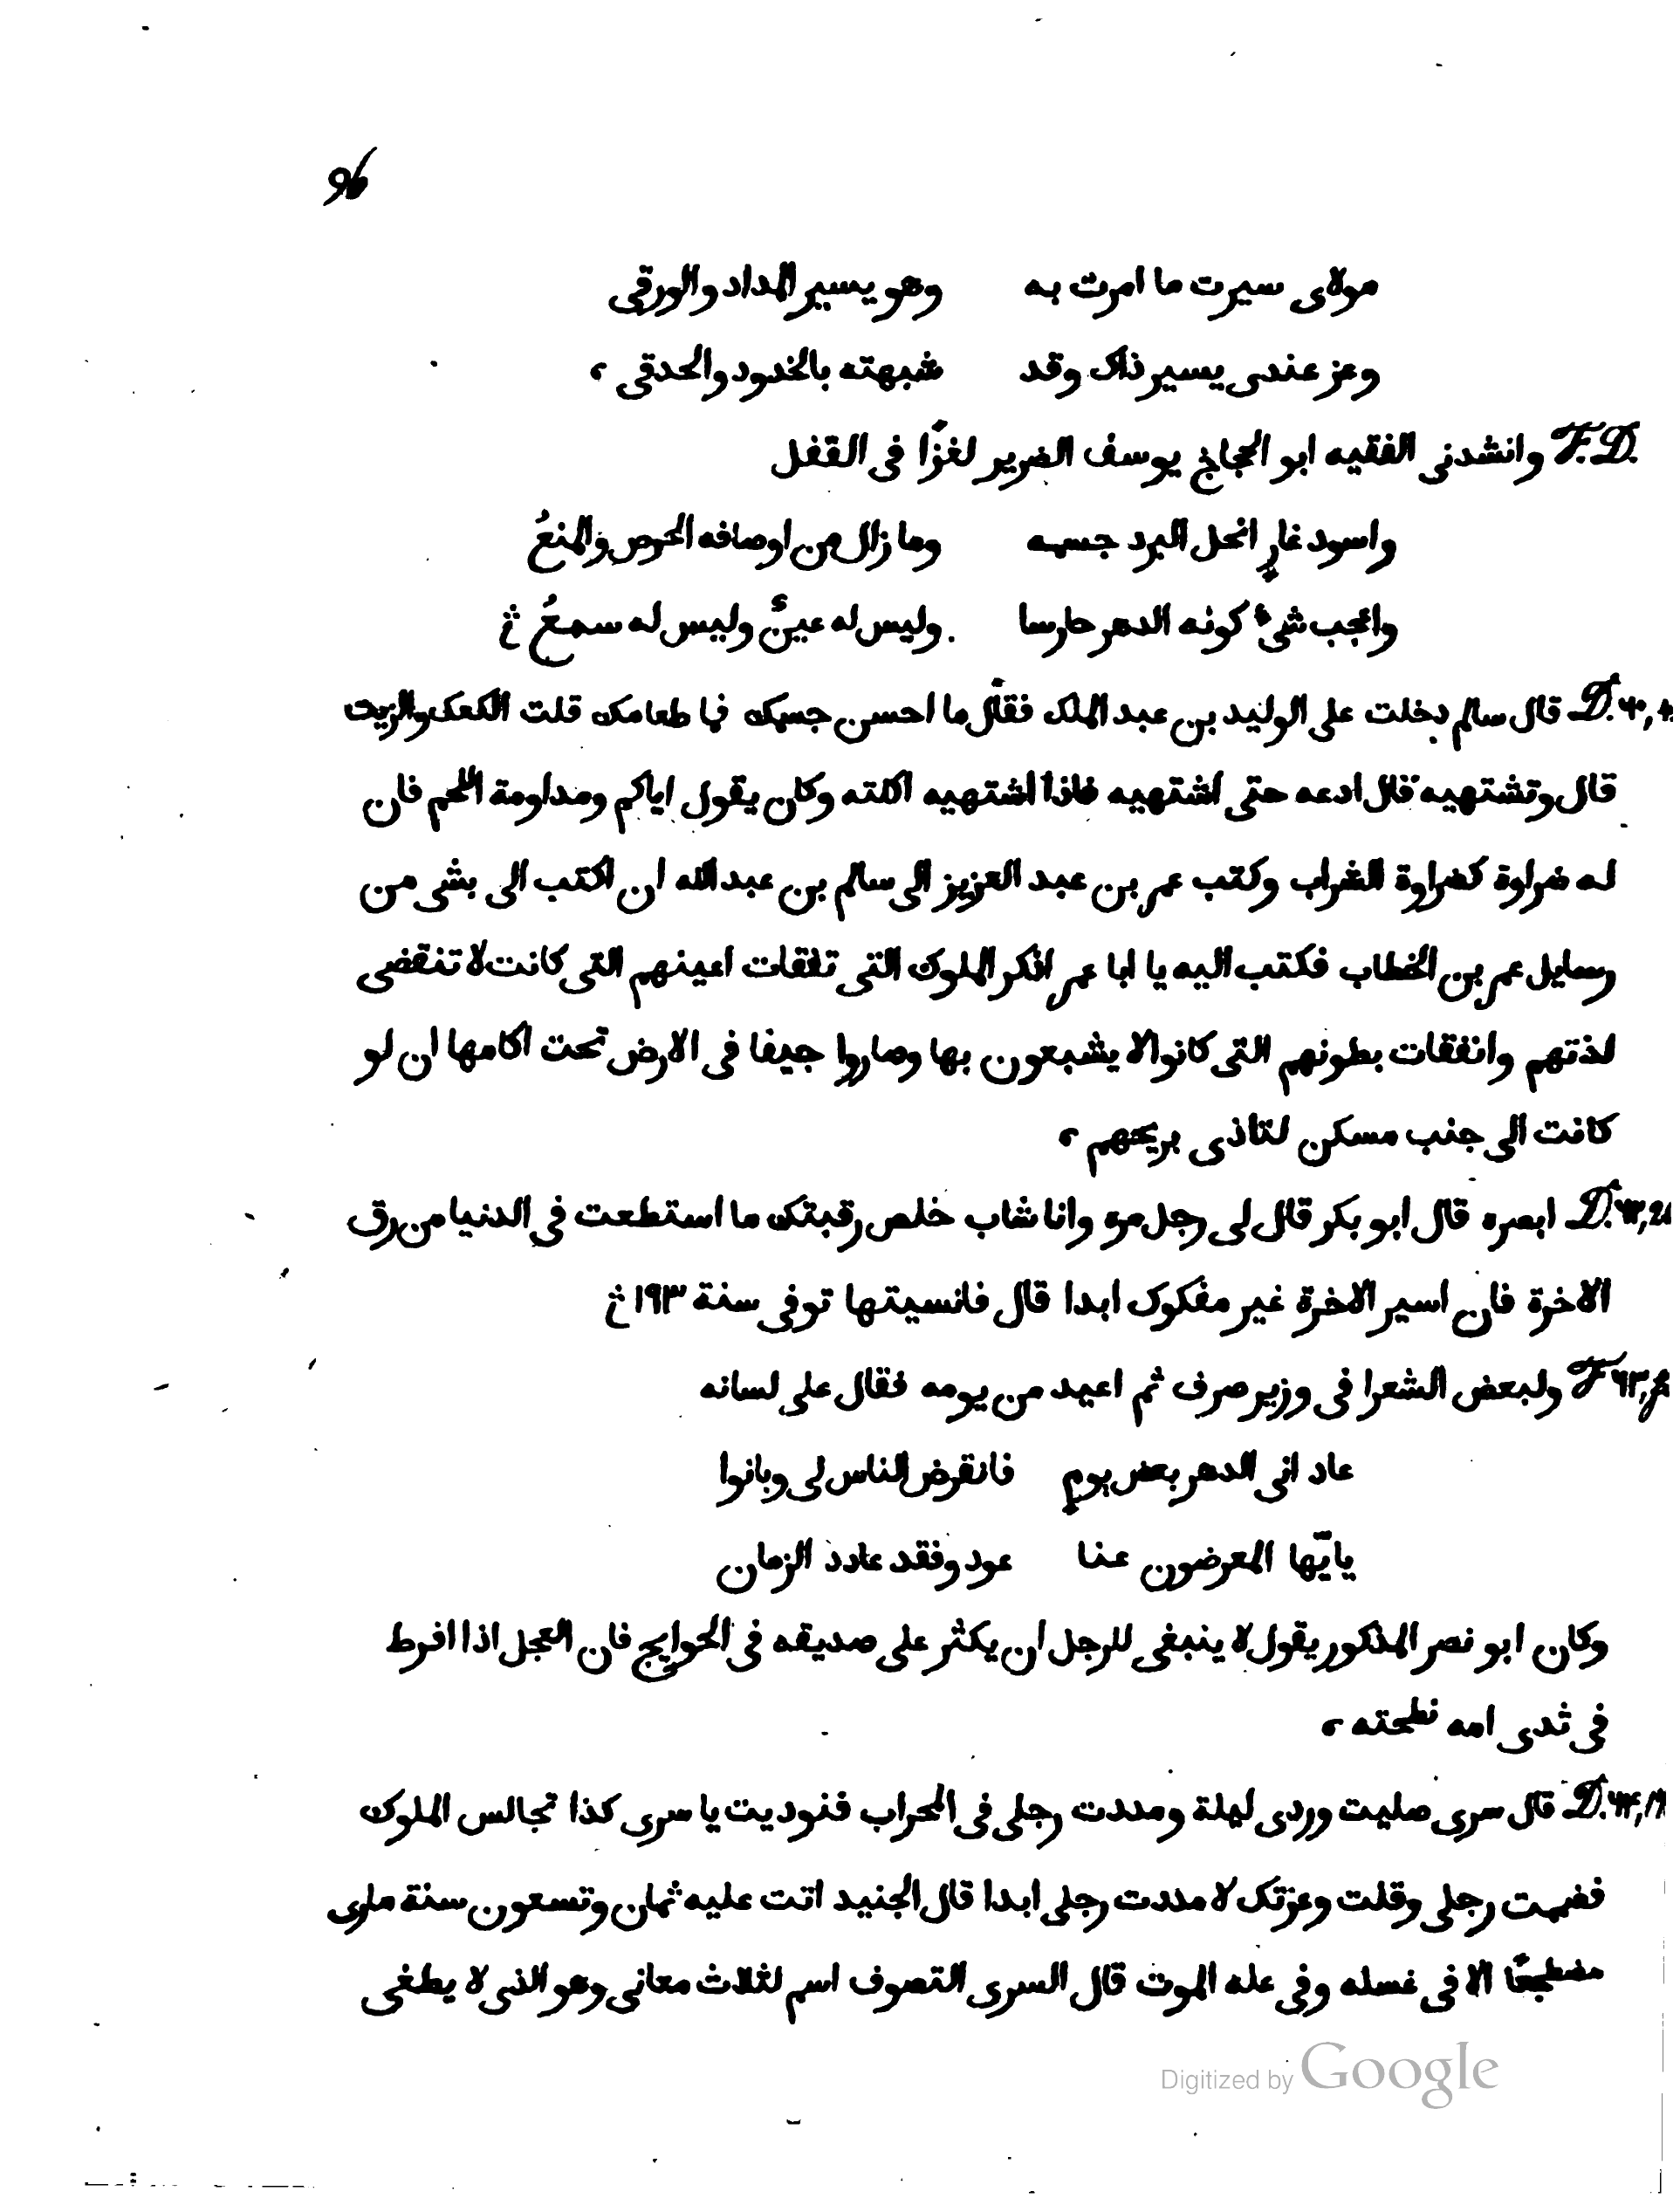 96
مولاى سيرت ما امرت به وهو يسير المداد والورقى
وعز عندى يسير ذاك وقد شبهته بالخدود والحدقى ،
F.D. وانشدنى الفقيه ابو الحجاج يوسف الضرير لغزًا فى القفل
واسود غارٍ انحل البرد جسمه وما زال من اوصافه الحرص والمنعُ
واعجب شىء كونه الدهر حارسا وليس له عينٌ وليس له سمعُ ثج
D. قال سالم دخلت على الوليد بن عبد الملك فقال ما احسن جسمك فما طعامك قلت الكعك والزيت
قال وتشتهيه قال ادعه حتى اشتهيه فاذا اشتهيه اكلته وكان يقول اياكم ومداومة اللحم فان
له ضراوة كضراوة الشراب وكتب عمر بن عبد العزيز الى سالم بن عبد الله ان اكتب الى بشى من
رسايل عمر بن الخطاب فكتب اليه يا ابا عمر اذكر الملوك التى تفقات اعينهم التى كانت لا تنقضى
لذتهم وانفقات بطونهم التى كانوا لا يشبعون بها وصاروا جيفا فى الارض تحت اكامها ان لو
كانت الى جنب مسكن لتاذى بريحهم ،
D. ابصره قال ابو بكر قال لى رجل مرة وانا شاب خلص رقبتك ما استطعت فى الدنيا من رق
الاخرة فان اسير الاخرة غير مفكوك ابدا قال فانسيتها توفى سنة ١٩٣ ثج
F ولبعض الشعرا فى وزير صرف ثم اعيد من يومه فقال على لسانه
عاد انى الدهر بعض يومٍ فانقرض الناس لى وبانوا
يايّها المعرضون عنا عودوفقد عادد الزمان
وكان ابو نصر المذكور يقول لا ينبغى للرجل ان يكثر على صديقه فى الحوايج فان العجل اذا افرط
فى ثدى امه نطحته ،
D. قال سرى صليت وردى ليلة ومددت رجلى فى المحراب فنوديت يا سرى كذا تجالس الملوك
فضممت رجلى وقلت وعزتك لا مددت رجلى ابدا قال الجنيد اتت عليه ثمان وتسعون سنة ما رى
مضطجعًا الا فى غسله وفى عله الموت قال السرى التصوف اسم لثلاث معانى وهو الذى لا يطغى
Digitized by Google